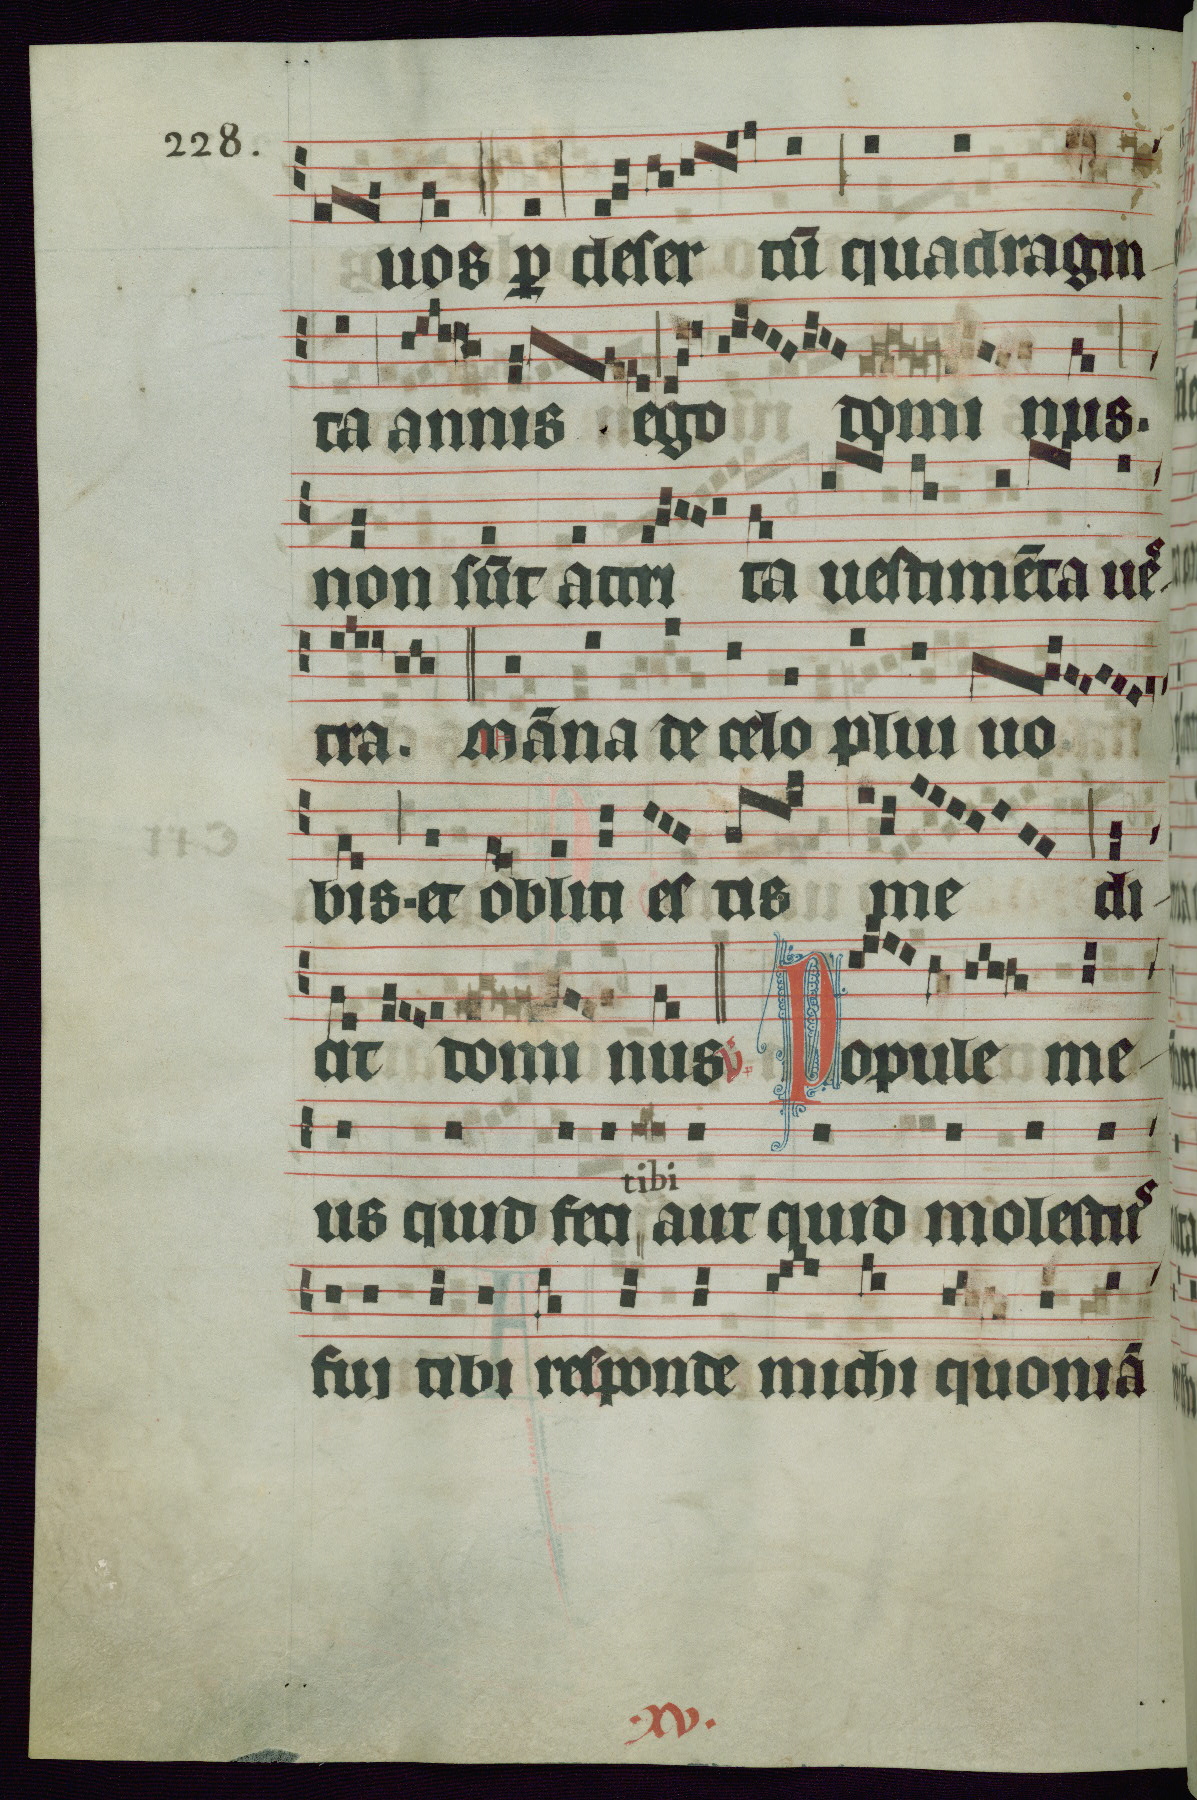 228.
uos ꝑ deser tū quadragin-
ta annis ego domi nus.
non sūt attri ta uestimēta ues
tra. māna de celo plui uo
bis. et obliti es tis me di-
cit domi nus ℣. Popule me-
tibi
us quid feci aut quid molestus
fuj tibi responde michi quoniā
.xv.